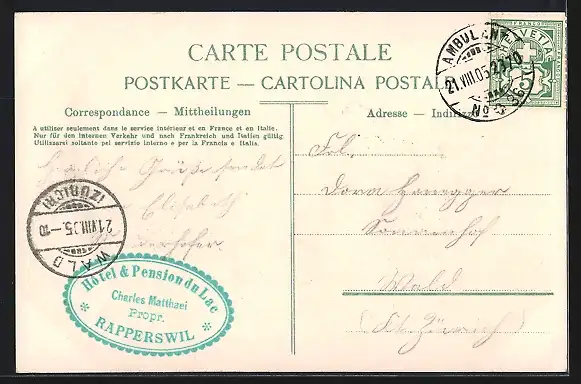 CARTE POSTALE
POSTKARTE — CARTOLINA POSTALE
Correspondance — Mittheilungen
A utiliser seulement dans le service intérieur et en France et en Italie.
Nur für den internen Verkehr und nach Frankreich und Italien gültig.
Utilizzarsi soltanto pel servizio interno e per la Francia e Italia.
Herzliche Grüße sendet
Elisabeth
Adresse — Indirizzo
Frl.
Dora Honegger
Sonnenhof
Wald
Kt. Zürich
AMBULANT
21.VIII.05
No
FRANCO
HELVETIA
WALD
(ZÜRICH)
21.VIII.05.–10
Hôtel & Pension du Lac
Charles Matthaei
Propr.
RAPPERSWIL